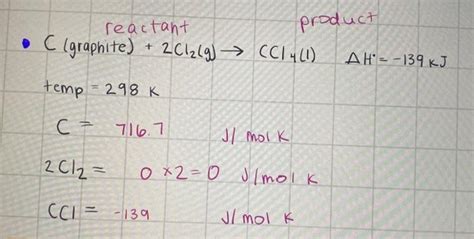 reactant product
• C (graphite) + 2Cl₂(g) → CCl₄(l) ΔH° = -139 KJ
temp = 298 K
C = 716.7 J/mol K
2Cl₂ = 0 × 2 = 0 J/mol K
CCl = -139 J/mol K